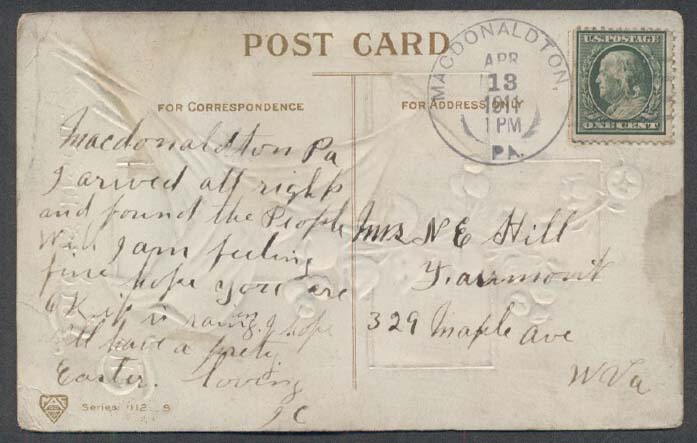 POST CARD
MACDONALDTON,
APR
13
1911
1 PM
PA.
U.S. POSTAGE
ONE CENT
FOR CORRESPONDENCE
FOR ADDRESS ONLY
Macdonaldton Pa
I arived all right
and found the People
Well I am feeling
fine hope you are
is I hope
have a
Easter. Loving
Mrs N E Hill
Fairmont
329 Maple Ave
W Va
Series 112